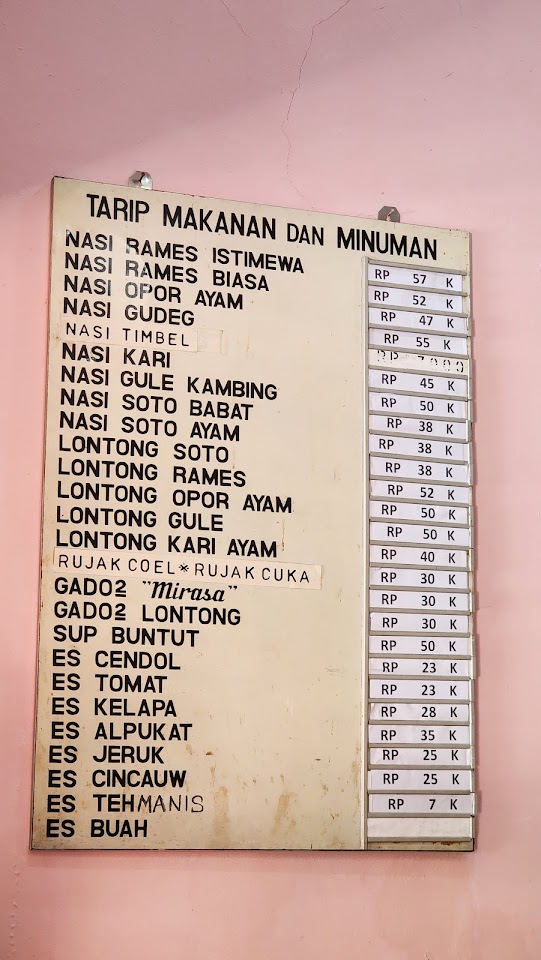 TARIP MAKANAN DAN MINUMAN
NASI RAMES ISTIMEWA RP 57 K
NASI RAMES BIASA RP 52 K
NASI OPOR AYAM RP 47 K
NASI GUDEG RP 55 K
NASI TIMBEL RP
NASI KARI RP 45 K
NASI GULE KAMBING RP 50 K
NASI SOTO BABAT RP 38 K
NASI SOTO AYAM RP 38 K
LONTONG SOTO RP 38 K
LONTONG RAMES RP 52 K
LONTONG OPOR AYAM RP 50 K
LONTONG GULE RP 50 K
LONTONG KARI AYAM RP 40 K
RUJAK COEL * RUJAK CUKA RP 30 K
GADO2 "Mirasa" RP 30 K
GADO2 LONTONG RP 30 K
SUP BUNTUT RP 50 K
ES CENDOL RP 23 K
ES TOMAT RP 23 K
ES KELAPA RP 28 K
ES ALPUKAT RP 35 K
ES JERUK RP 25 K
ES CINCAUW RP 25 K
ES TEH MANIS RP 7 K
ES BUAH